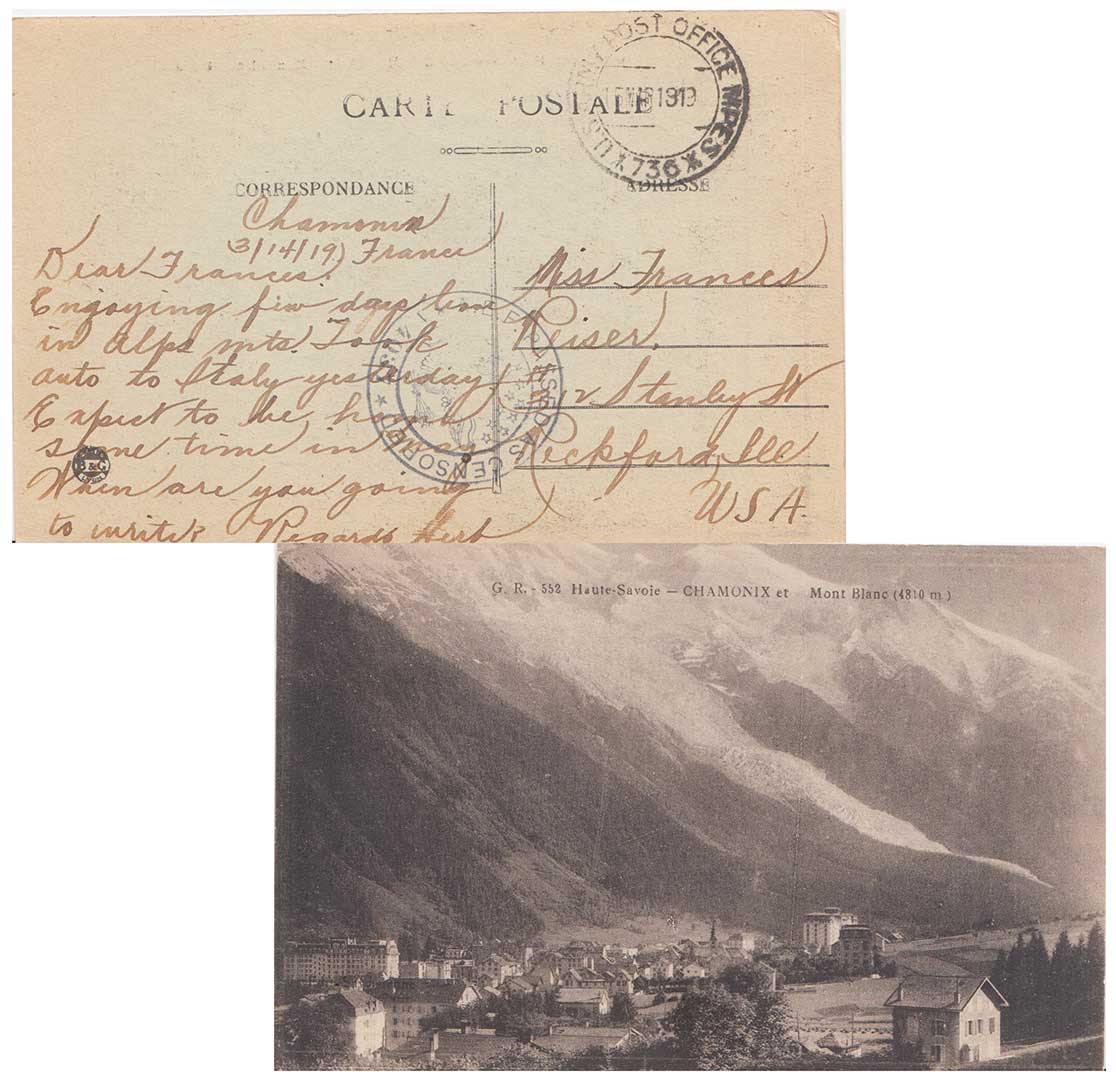 CARTE POSTALE
U.S. ARMY POST OFFICE M.P.E.S.
1919
★ 736 ★
CORRESPONDANCE
ADRESSE
Chamonix
3/14/19) France
Dear Frances.
Enjoying few days time
in Alps mts. Took
auto to Italy yesterday
Expect to be home
some time in
When are you going
to write? Regards Herb
Miss Frances
Reiser,
Stanley St
Rockford, Ill
USA.
CENSORED
B & G
G. R. - 552 Haute-Savoie — CHAMONIX et Mont Blanc (4810 m.)